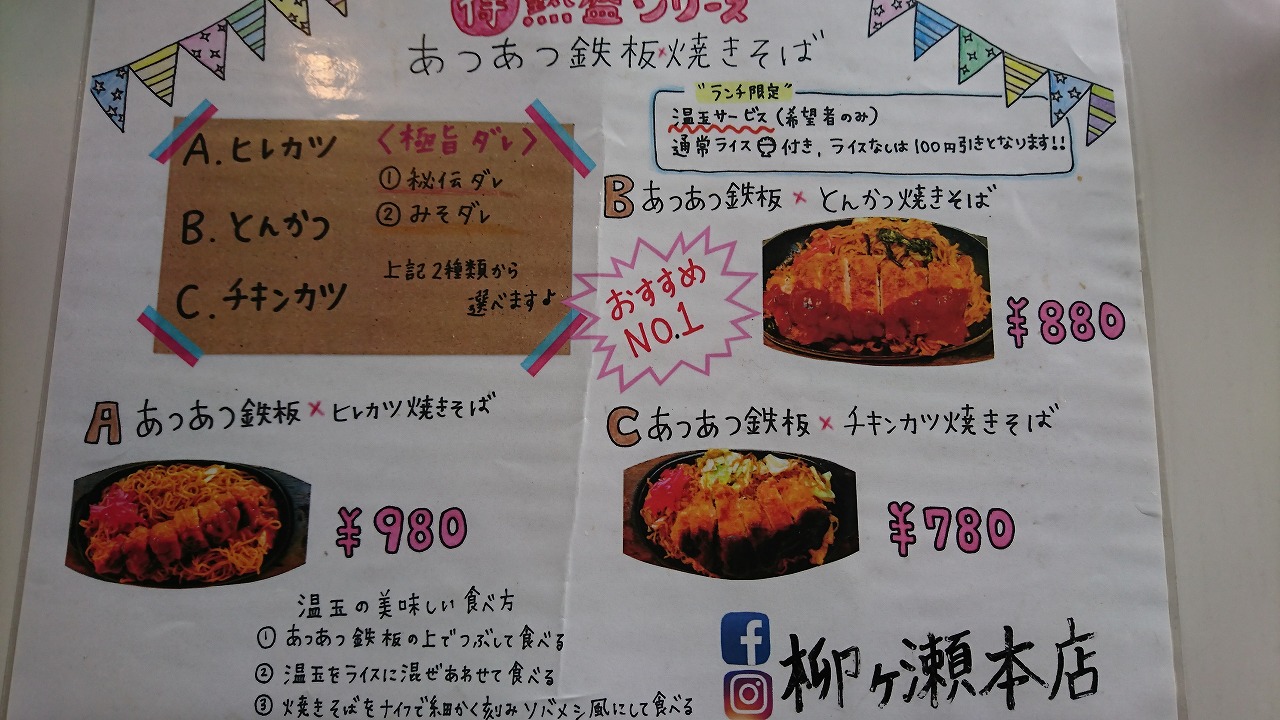 熱盛シリーズ
あつあつ鉄板×焼きそば
"ランチ限定"
温玉サービス(希望者のみ)
通常ライス付き、ライスなしは100円引きとなります!!
A. ヒレカツ
B. とんかつ
C. チキンカツ
〈極旨ダレ〉
① 秘伝ダレ
② みそダレ
上記2種類から
選べます♪
おすすめ
NO.1
B あつあつ鉄板×とんかつ焼きそば
¥880
A あつあつ鉄板×ヒレカツ焼きそば
¥980
C あつあつ鉄板×チキンカツ焼きそば
¥780
温玉の美味しい食べ方
① あつあつ鉄板の上でつぶして食べる
② 温玉をライスに混ぜあわせて食べる
③ 焼きそばをナイフで細かく刻みソバメシ風にして食べる
f
柳ヶ瀬本店